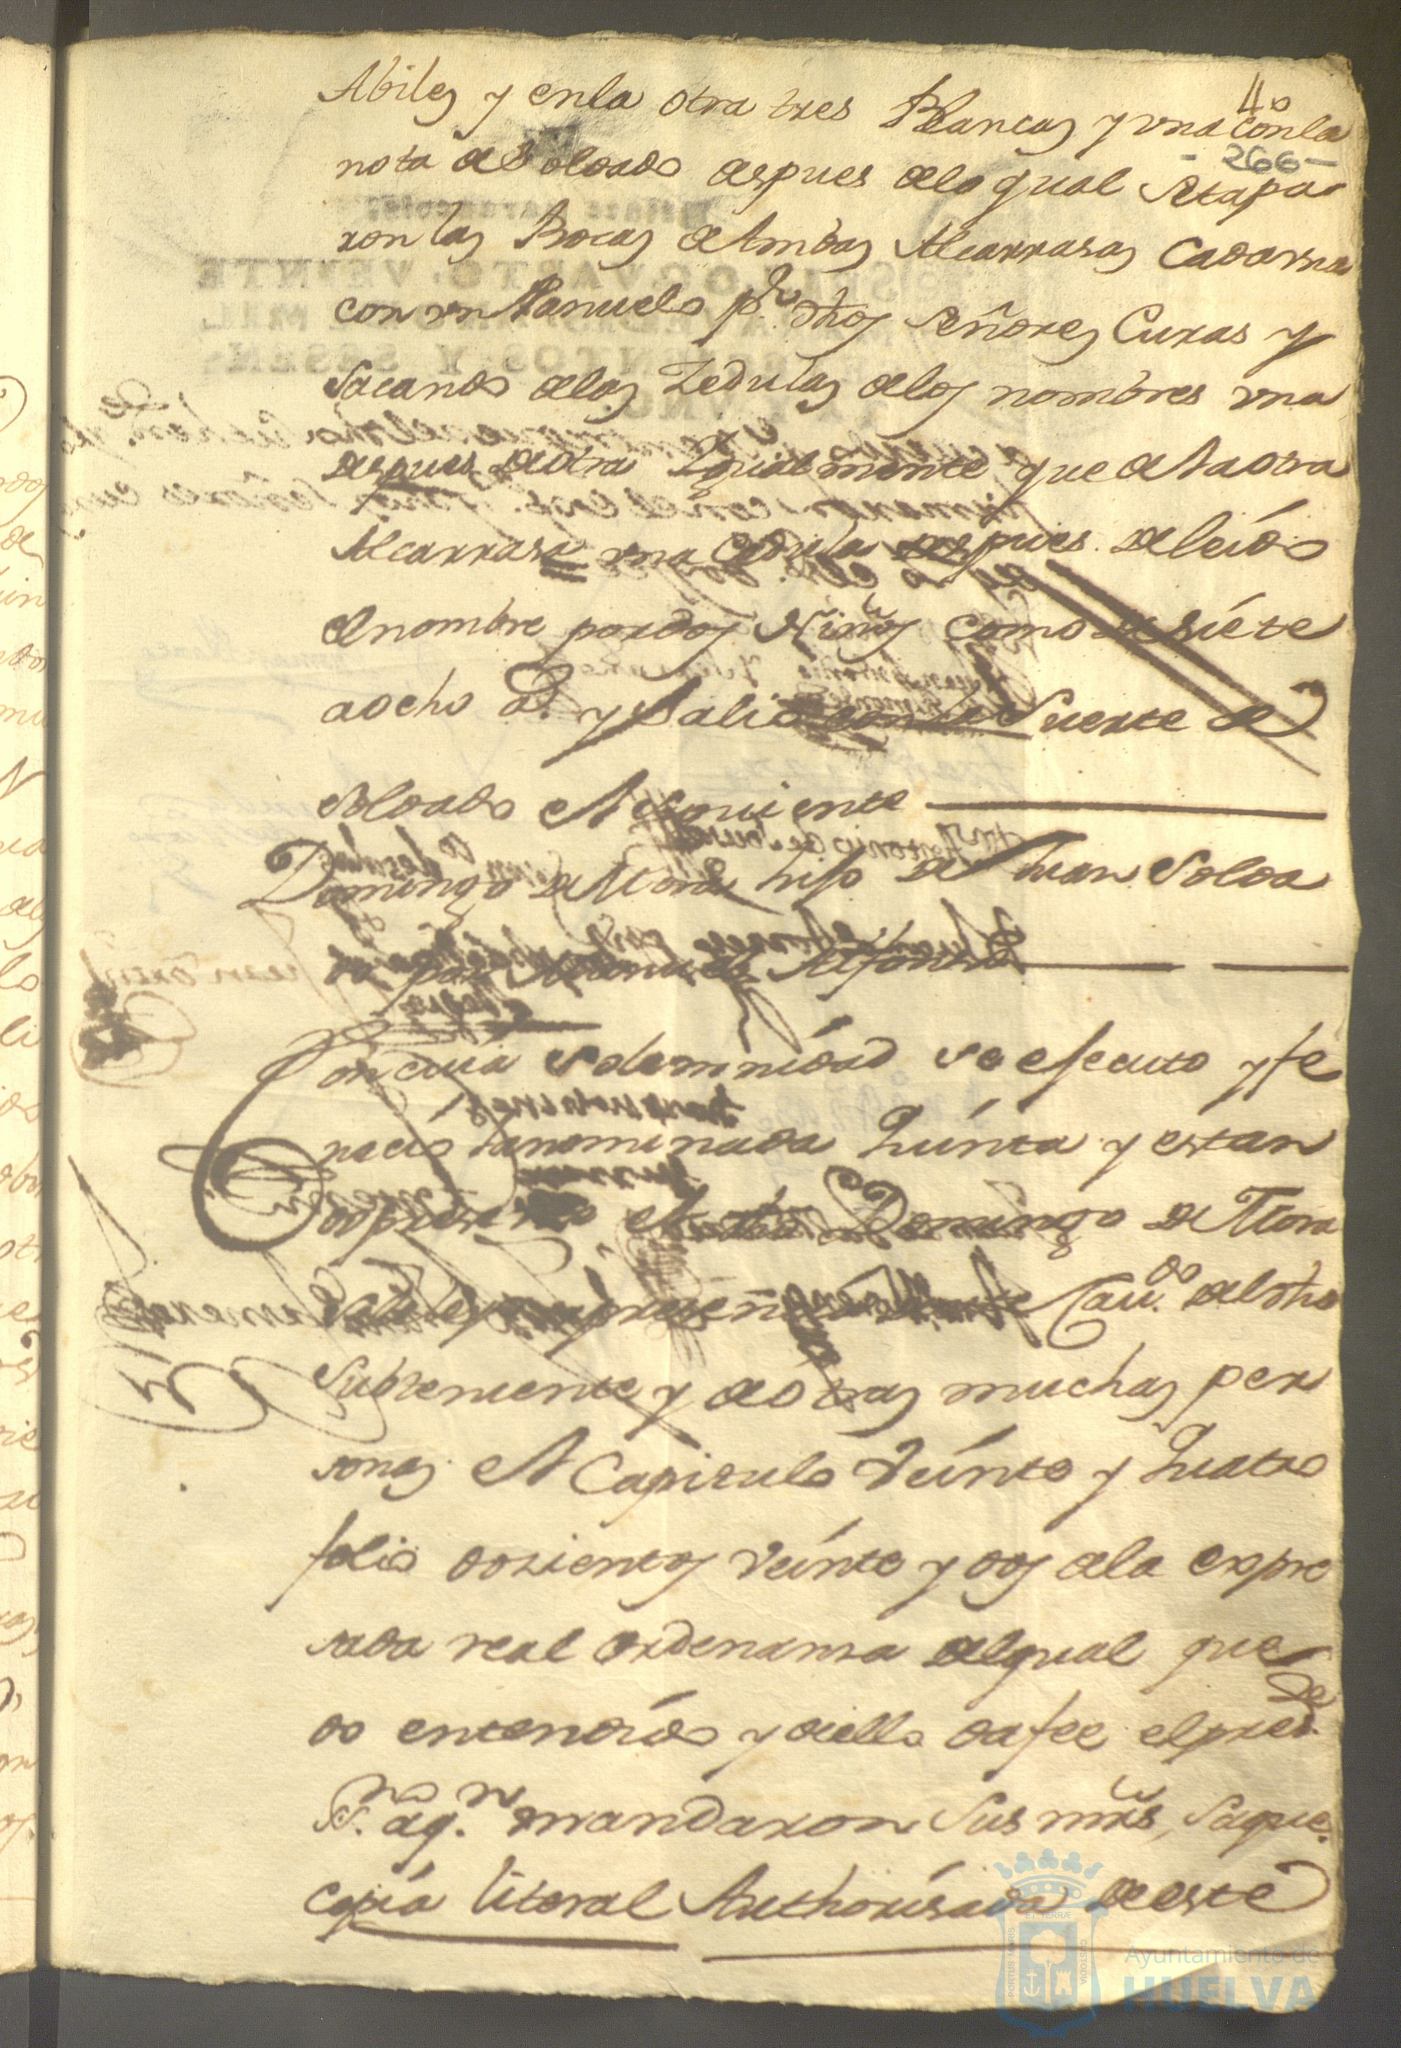 40
Abiles y enla otra tres Blancas y vna conla
- 266 -
nota de Soldado despues delo qual setapa
ron las Bocas de Ambas Alcarrasas Cada vna
con vn Panuelo pr. dhos Señores Curas y
sacando delas Zedulas delos nombres vna
despues de otra Igualmente que de la otra
Alcarrasa vna Cedula despues deleido
el nombre por dos Niños como de siete
a ocho a.s y salio con la Suerte de
soldado el siguiente
Domingo de Mora hijo de Juan Solda
do por Manuel Alfonso
Con cuia solemnidad se efecuto y fe
necio la nominada Quinta y estan
do presente el dho Domingo de Mora
se le leyo en presencia de este Cau.do del dho
Subteniente y de otras muchas per
sonas el Capitulo Veinte y Quatro
folio dozientos Veinte y dos dela expre
sada real ordenanza delqual que
do entendido y dello dafee el pred.
S.no aq.n mandaron Sus mrds, Saque
copia literal Authorisada de este
Ayuntamiento de
HUELVA